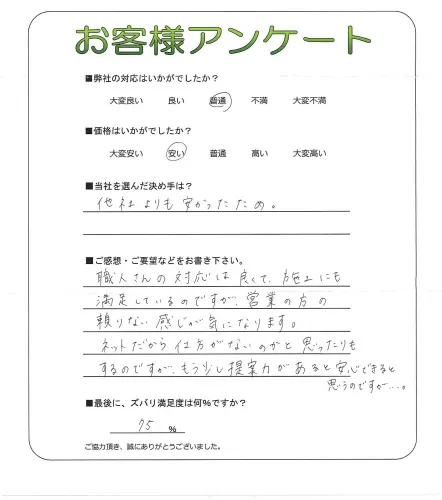 お客様アンケート
■弊社の対応はいかがでしたか？
大変良い 良い 普通 不満 大変不満
■価格はいかがでしたか？
大変安い 安い 普通 高い 大変高い
■当社を選んだ決め手は？
他社よりも安かったため。
■ご感想・ご要望などをお書き下さい。
職人さんの対応は良くて、施工にも
満足しているのですが、営業の方の
頼りない感じが気になります。
ネットだから仕方がないのかと思ったりも
するのですが、もう少し提案力があると安心できると
思うのですが…。
■最後に、ズバリ満足度は何%ですか？
75 %
ご協力頂き、誠にありがとうございました。